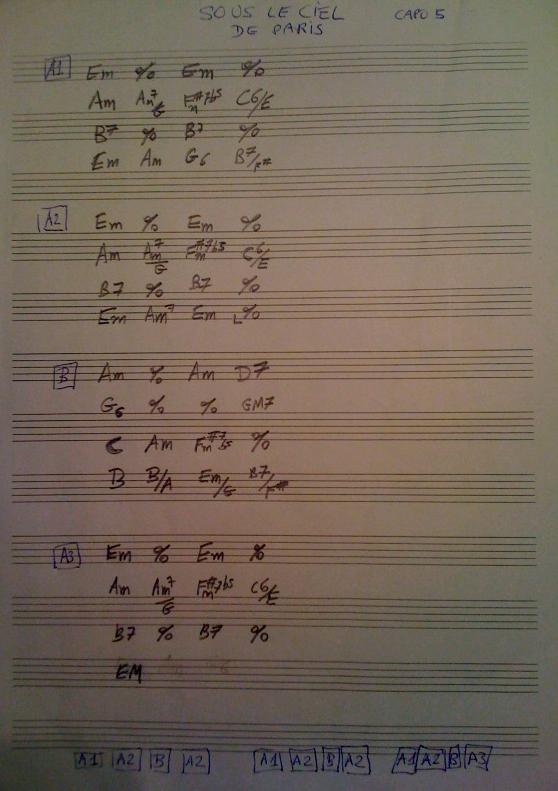 SOUS LE CIEL CAPO 5
DE PARIS
A1 Em % Em %
Am Am7/G F#m7b5 C6/E
B7 % B7 %
Em Am G6 B7/F#
A2 Em % Em %
Am Am7/G F#m7b5 C6/E
B7 % B7 %
Em Am7 Em %
B Am % Am D7
G6 % % GM7
C Am F#m7b5 %
B B/A Em/G B7/F#
A3 Em % Em %
Am Am7/G F#m7b5 C6/E
B7 % B7 %
EM
A1 A2 B A2 A1 A2 B A2 A1 A2 B A3